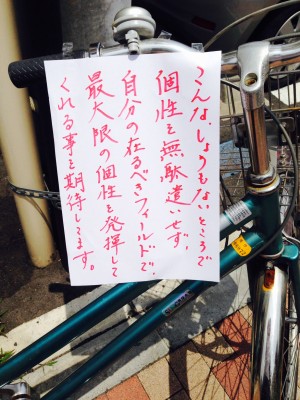 こんな、しょうもないところで
個性を無駄遣いせず、
自分の在るべきフィールドで、
最大限の個性を発揮して
くれる事を期待してます。